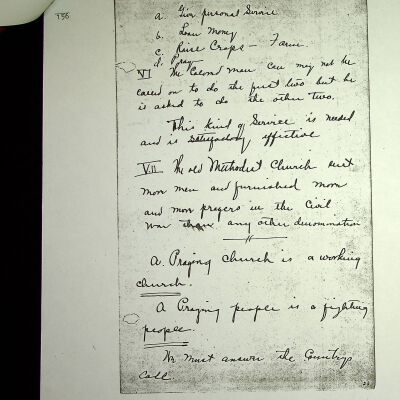 T56
a. Give personal Service
b. Loan Money
c. Raise Crops — Farm.
d. Pray
VI The Colored man can may not be
called on to do the first two but he
is asked to do the other two.
This kind of Service is needed
and is satisfactory effective
VII The old Methodist Church sent
more men and furnished more
and more prayers in the Civil
War than any other denomination
A. Praying Church is a working
church.
A Praying people is a fighting
people.
We must answer the Countrys
call.